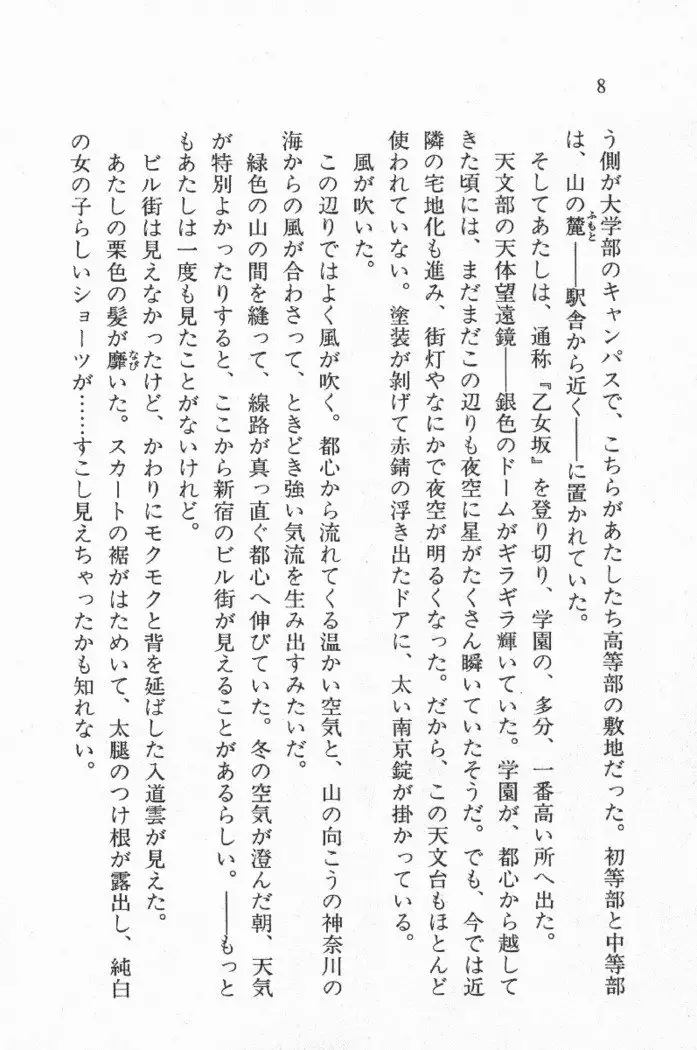 8
う側が大学部のキャンパスで、こちらがあたしたち高等部の敷地だった。初等部と中等部
は、山の麓――駅舎から近く――に置かれていた。
そしてあたしは、通称『乙女坂』を登り切り、学園の、多分、一番高い所へ出た。
天文部の天体望遠鏡――銀色のドームがギラギラ輝いていた。学園が、都心から越して
きた頃には、まだまだこの辺りも夜空に星がたくさん瞬いていたそうだ。でも、今では近
隣の宅地化も進み、街灯やなにかで夜空が明るくなった。だから、この天文台もほとんど
使われていない。塗装が剝げて赤錆の浮き出たドアに、太い南京錠が掛かっている。
風が吹いた。
この辺りではよく風が吹く。都心から流れてくる温かい空気と、山の向こうの神奈川の
海からの風が合わさって、ときどき強い気流を生み出すみたいだ。
緑色の山の間を縫って、線路が真っ直ぐ都心へ伸びていた。冬の空気が澄んだ朝、天気
が特別よかったりすると、ここから新宿のビル街が見えることがあるらしい。――もっと
もあたしは一度も見たことがないけれど。
ビル街は見えなかったけど、かわりにモクモクと背を延ばした入道雲が見えた。
あたしの栗色の髪が靡いた。スカートの裾がはためいて、太腿のつけ根が露出し、純白
の女の子らしいショーツが……すこし見えちゃったかも知れない。